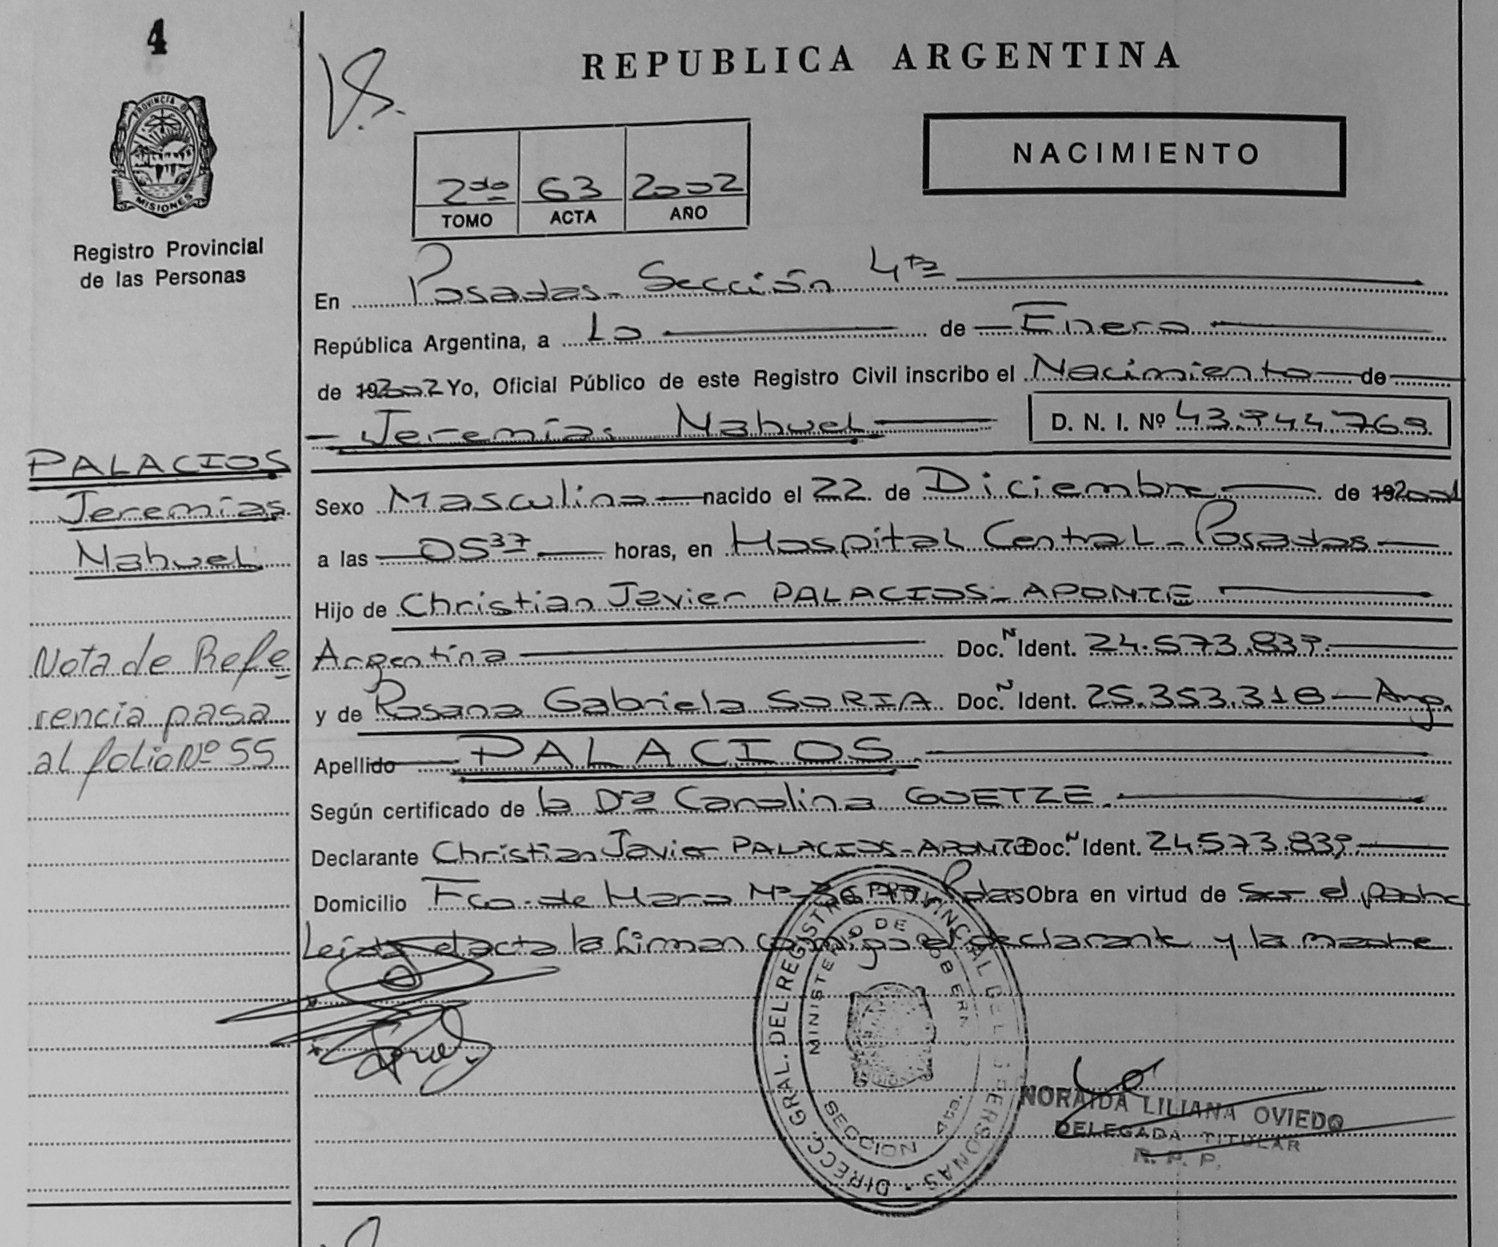 4
PROVINCIA DE
MISIONES
Registro Provincial
de las Personas
REPUBLICA ARGENTINA
NACIMIENTO
2do 63 2002
TOMO ACTA AÑO
En Posadas - Sección 4ta
República Argentina, a 10 de Enero
de 192002 Yo, Oficial Público de este Registro Civil inscribo el Nacimiento de
Jeremías Nahuel D. N. I. Nº 43.944.769
PALACIOS
Jeremías
Nahuel
Sexo Masculino nacido el 22 de Diciembre de 192001
a las 0537 horas, en Hospital Central - Posadas
Hijo de Christian Javier PALACIOS - APONTE
Argentina Doc.N Ident. 24.573.839
y de Rosana Gabriela SORIA Doc.N Ident. 25.353.318 - Arg.
Nota de Refe
rencia pasa
al folio Nº 55
Apellido PALACIOS
Según certificado de la Dra Carolina GOETZE.
Declarante Christian Javier PALACIOS - APONTE Doc.N Ident. 24573.839
Domicilio Fco. de Haro Nº Pdas Obra en virtud de ser el padre
Leída el acta la firman conmigo el declarante y la madre
DIRECC. GRAL. DEL REGISTRO PROVINCIAL DE LAS PERSONAS
MINISTERIO DE GOBIERNO
SECCION 4ta.
NORAIDA LILIANA OVIEDO
DELEGADA TITULAR
R. P. P.